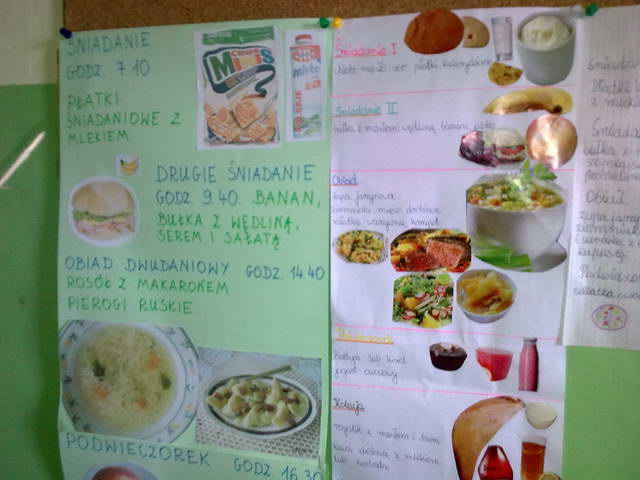 ŚNIADANIE
GODZ. 7.10
PŁATKI
ŚNIADANIOWE Z
MLEKIEM
Minis
mleko
DRUGIE ŚNIADANIE
GODZ. 9.40. BANAN,
BUŁKA Z WĘDLINĄ,
SEREM I SAŁATĄ
OBIAD DWUDANIOWY GODZ. 14.40
ROSÓŁ Z MAKARONEM
PIEROGI RUSKIE
PODWIECZOREK GODZ. 16.30
Śniadanie I
chleb, masło, ser, płatki kukurydziane
Śniadanie II
bułka z masłem i wędliną, banan, jabłko
Obiad
zupa jarzynowa
ziemniaki, mięso drobiowe
sałatka warzywna, kompot
Podwieczorek
Budyń lub kisiel
jogurt owocowy
Kolacja
rogalik z masłem i dżem
kawa zbożowa z mlekiem
lub herbata
Płatki
z mlek
Obiad:
zupa